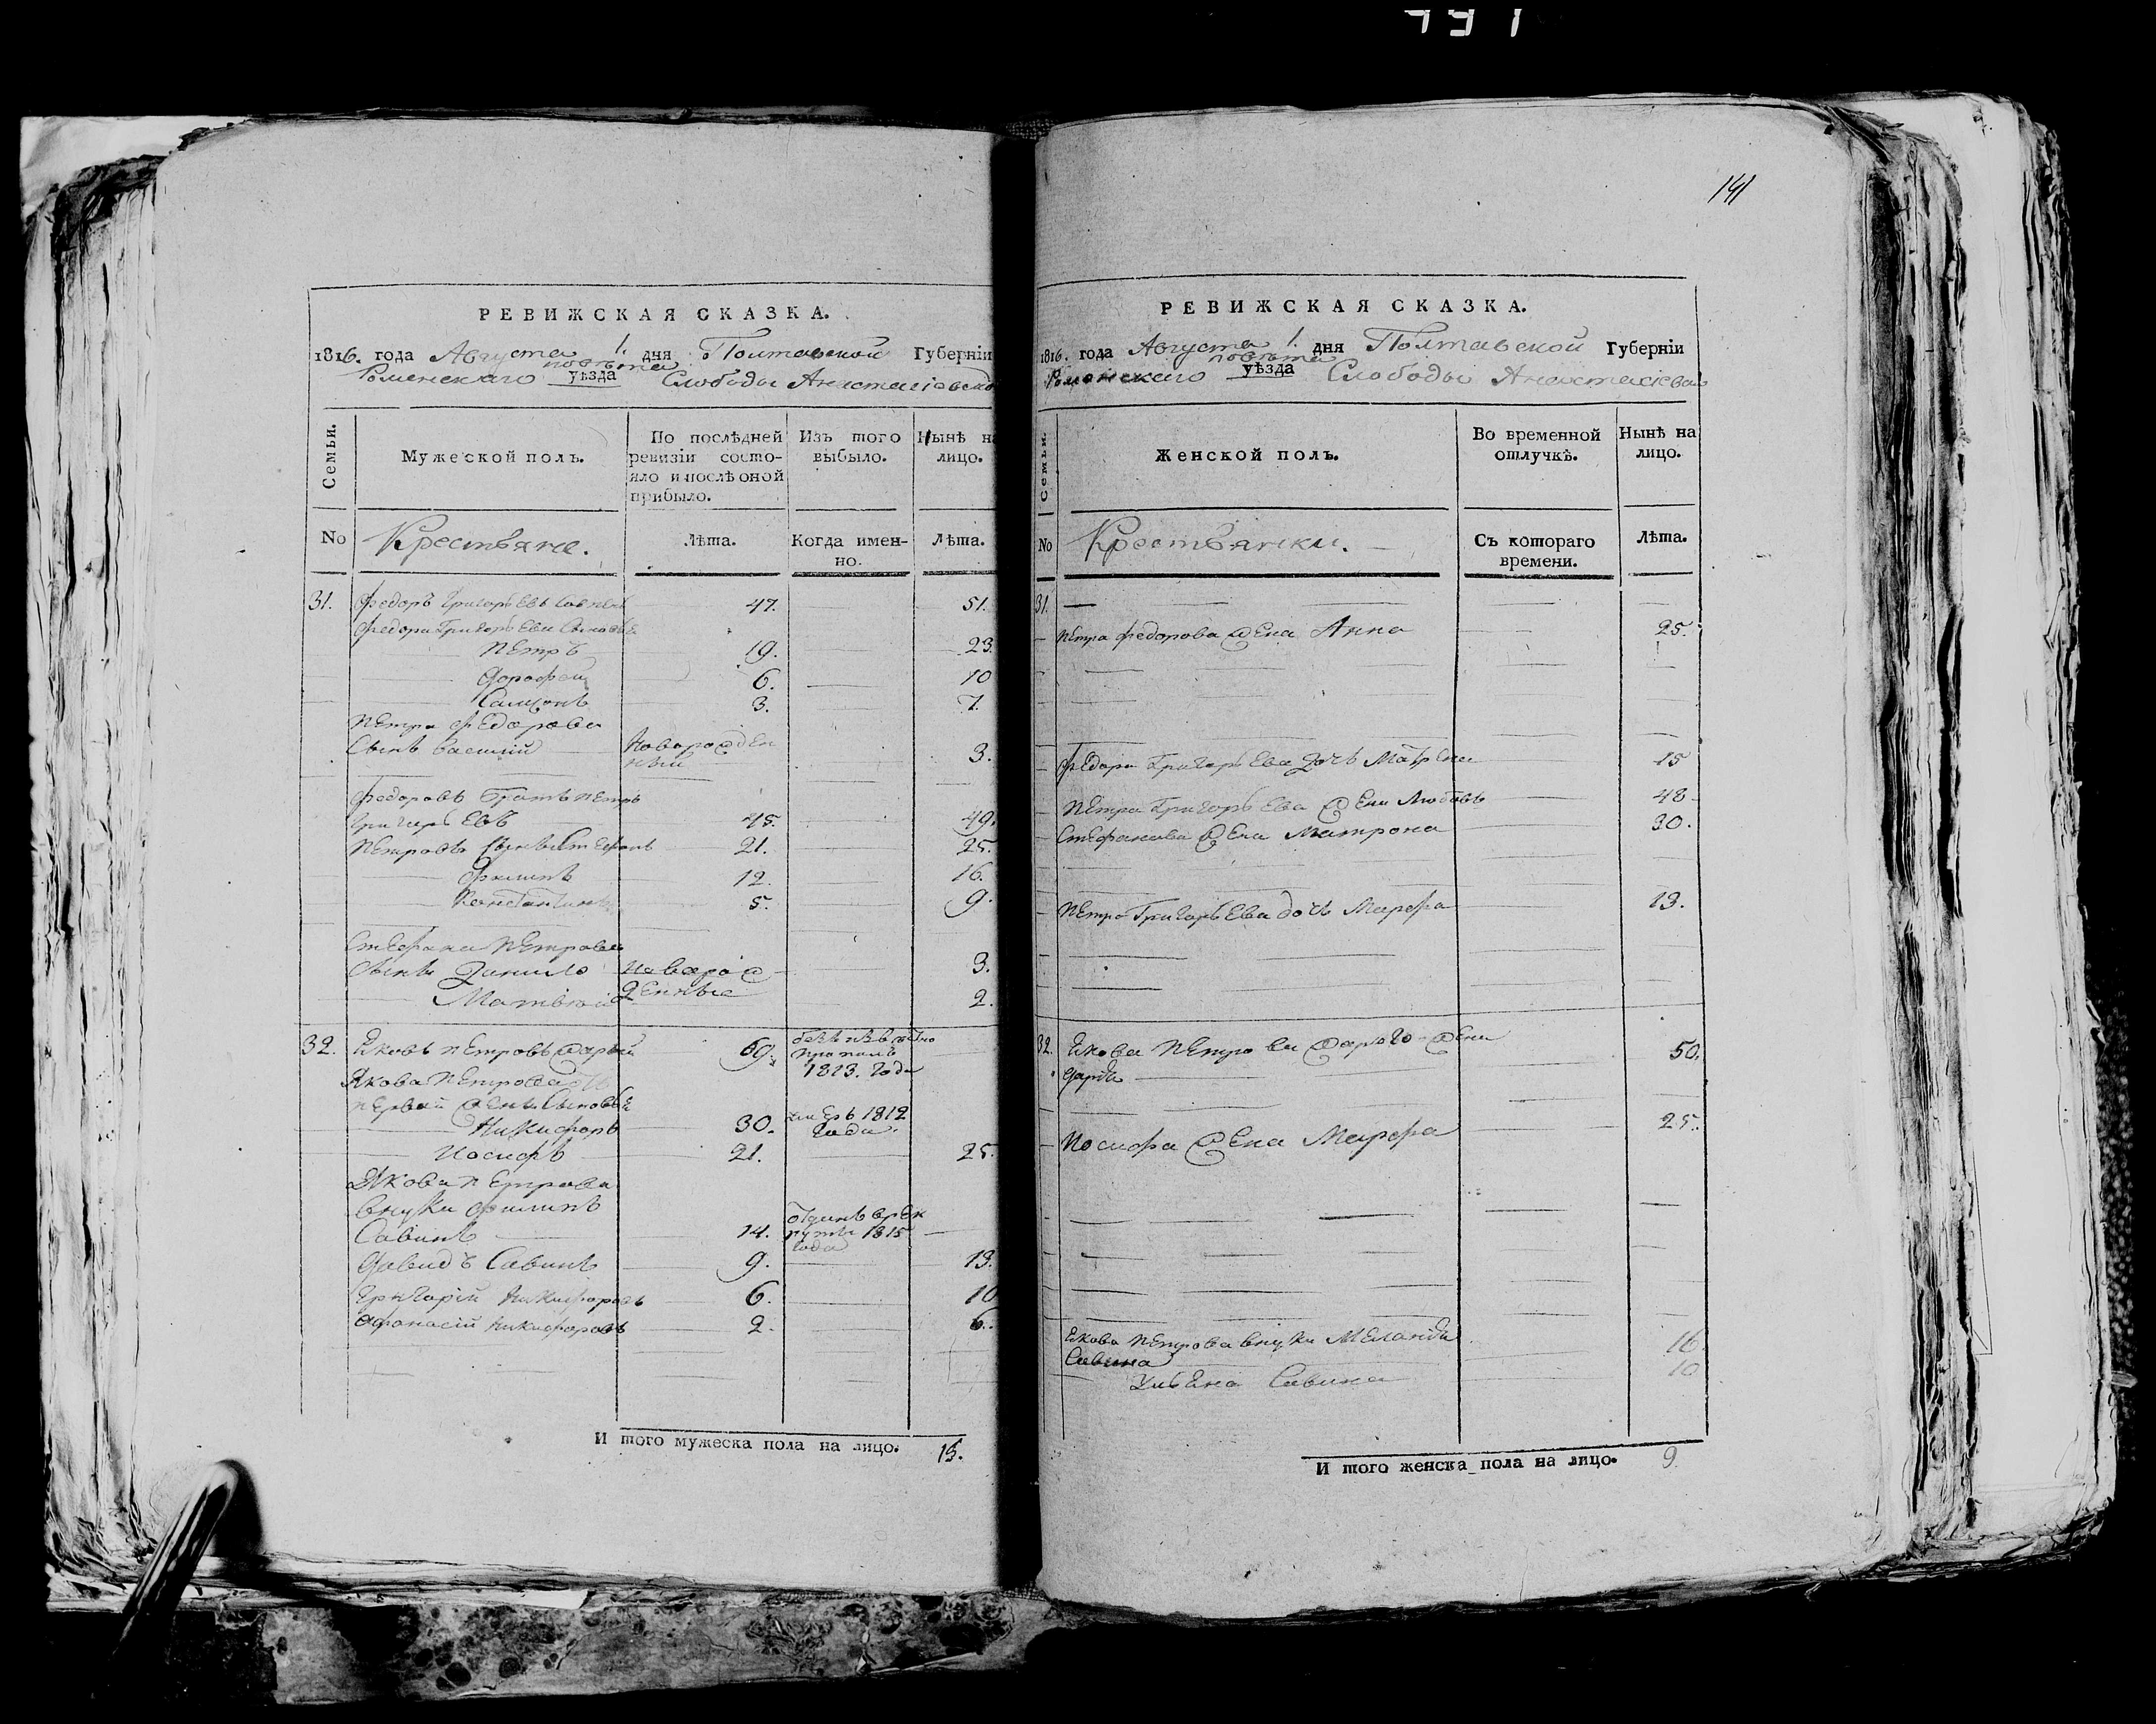 141
РЕВИЖСКАЯ СКАЗКА.
1816. года Августа 1. дня Полтавской Губерніи
повѣта
Роменского уѣзда Слободы Анастасіевской
Семьи.
Мужеской полъ.
По послѣдней ревизіи состояло и послѣ оной прибыло.
Изъ того выбыло.
Нынѣ на лицо.
No
Крестьяне.
Лѣта.
Когда именно.
Лѣта.
31. Федоръ Григорьевъ 47. 51.
Федора Григорьева Сыновья
Петръ 19. 23.
Дорофей 6. 10
Самсонъ 3. 7.
Петра Федорова
Сынъ Василий Новорожденный 3.
Федоровъ Братъ Петръ
Григорьевъ 45. 49.
Петровъ Сынъ Стефанъ 21. 25.
Филипъ 12. 16.
Константинъ 5. 9.
Стефана Петрова
Сынъ Данило Новорож 3.
Матвѣй денные 2.
32. Яковъ Петровъ 69. безъ извѣстно пропалъ 1813. года
Якова Петрова
первой жены Сыновья
Никифоръ 30. умеръ 1812 года.
Иосифъ 21. 25.
Якова Петрова
внуки Филипъ
Савинъ 14. отданъ в рекруты 1815 года
Давидъ Савинъ 9. 13.
Григорій Никифоровъ 6. 10
Афонасій Никифоровъ 2. 6.
И того мужеска пола на лицо. 15.
РЕВИЖСКАЯ СКАЗКА.
1816. года Августа 1. дня Полтавской Губерніи
повѣта
Роменского уѣзда Слободы
Семьи.
Женской полъ.
Во временной отлучкѣ.
Нынѣ на лицо.
No
Крестьянки.
Съ котораго времени.
Лѣта.
31.
Петра Федорова жена Анна 25.
Федора Григорьева дочь Матрена 15
Петра Григорьева жена Любовь 48
Стефанова жена Матрона 30.
Петра Григорьева дочь Марфа 13.
32. Якова Петрова жена 50.
Дарія
Иосифа жена Марфа 25.
Якова Петрова внуки Меланія 16
Савина 10
Ульяна Савина
И того женска пола на лицо. 9.